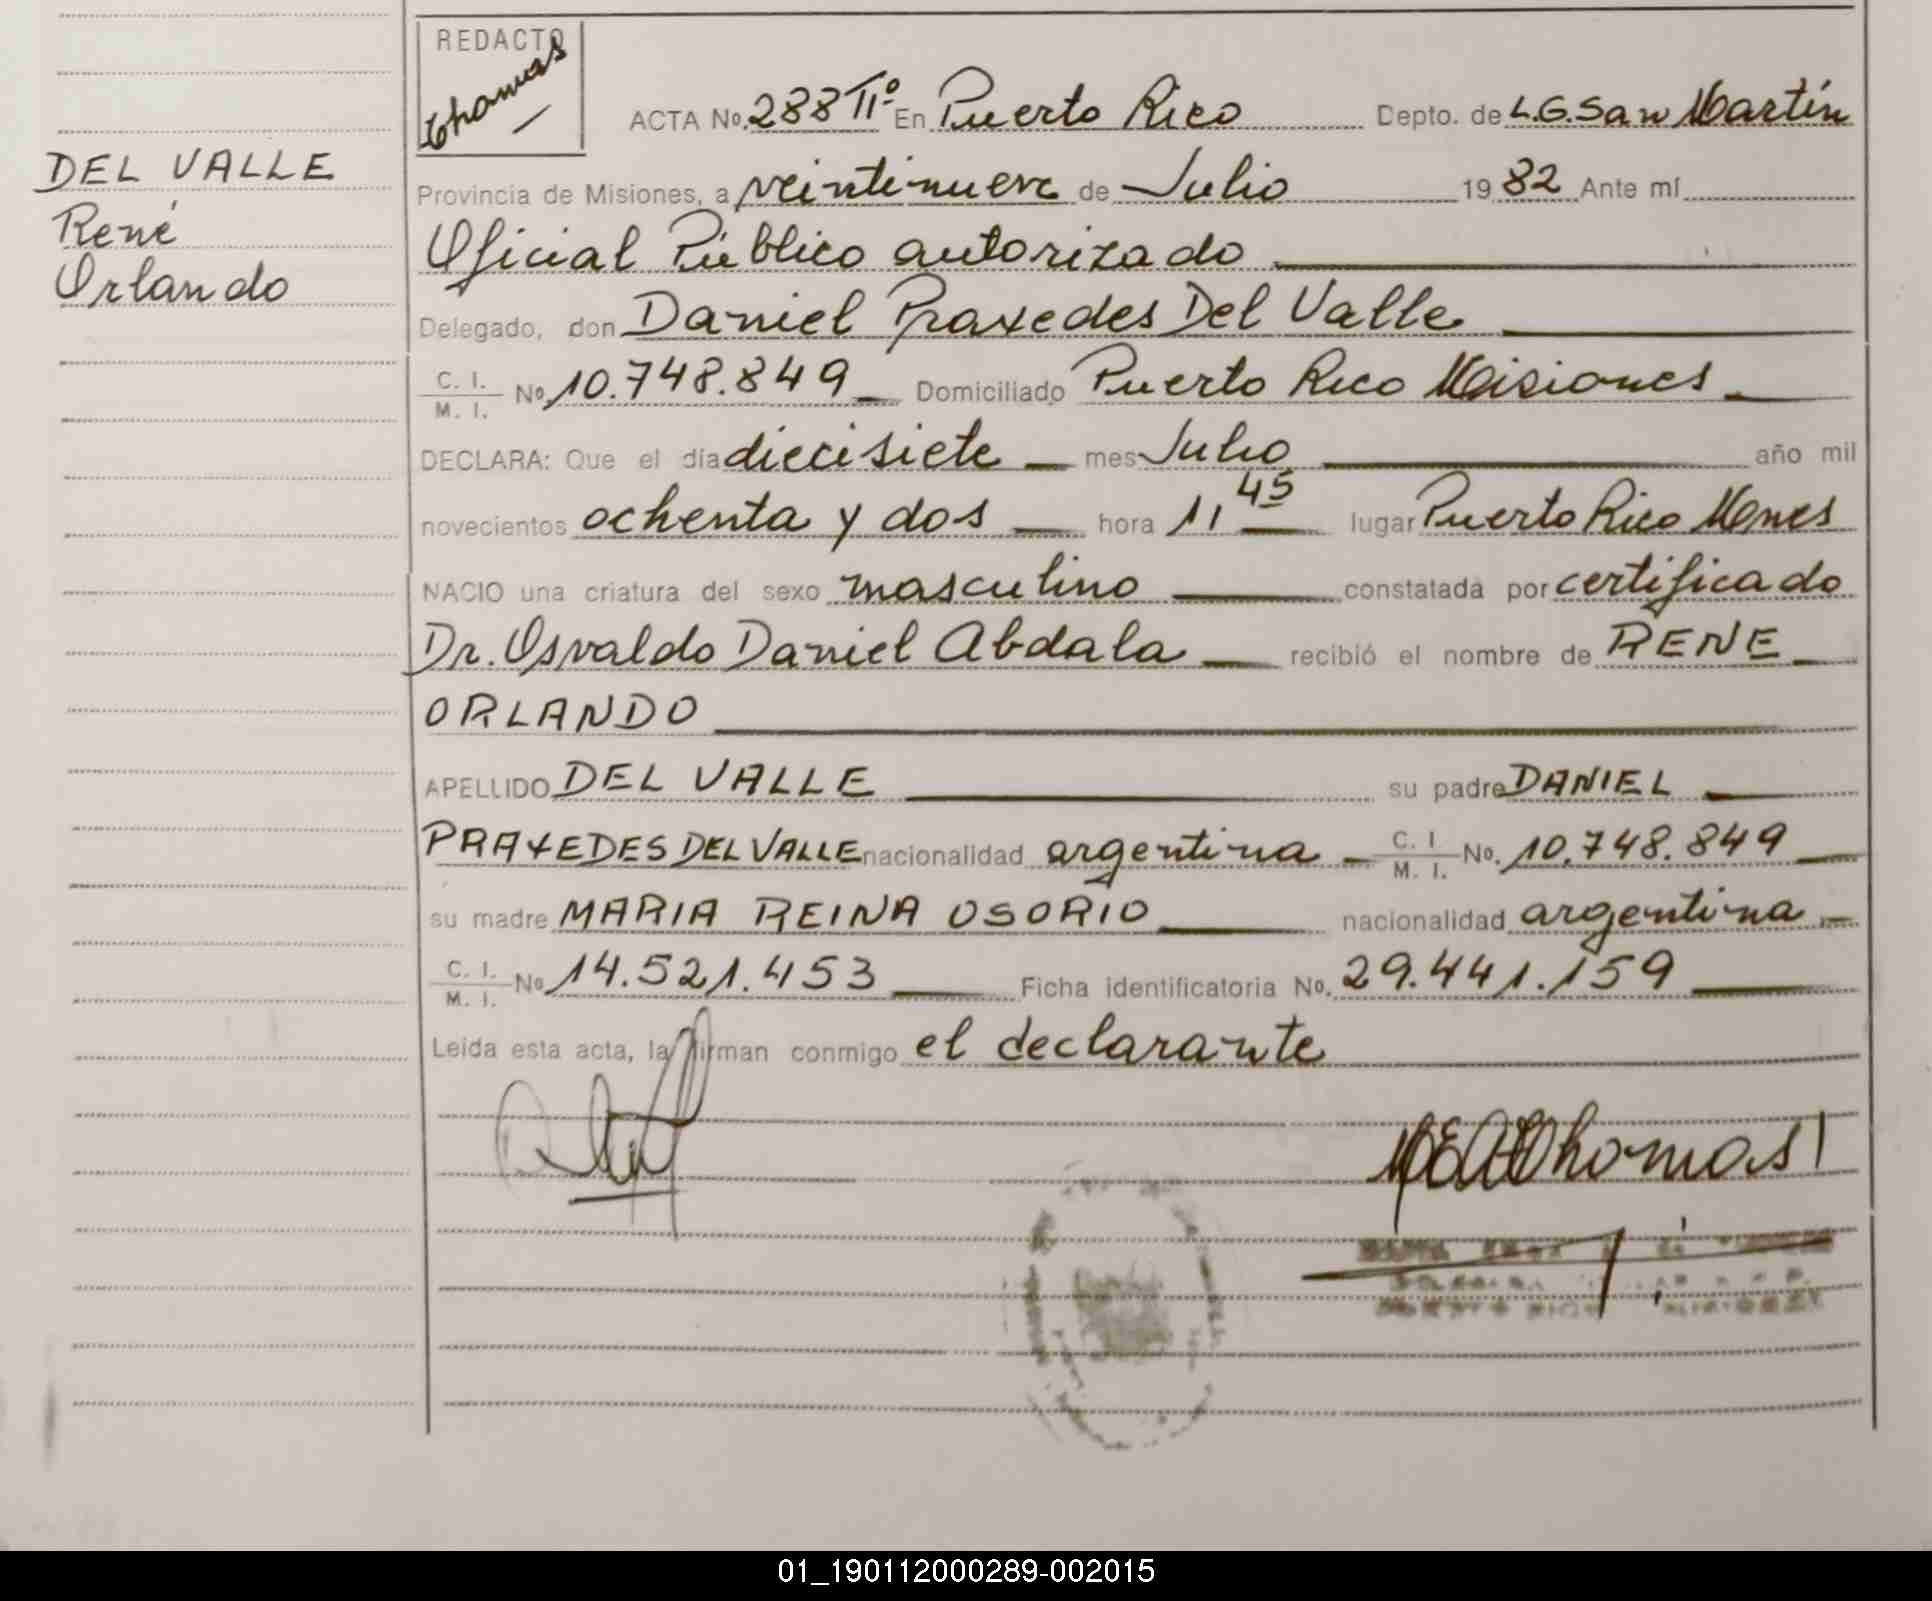 REDACTO
Thomas
DEL VALLE
René
Orlando
ACTA No. 288 IIº En Puerto Rico Depto. de L.G. San Martín
Provincia de Misiones, a veintinueve de Julio 1982 Ante mí
Oficial Público autorizado
Delegado, don Daniel Praxedes Del Valle
C. I.
M. I. No. 10.748.849 Domiciliado Puerto Rico Misiones
DECLARA: Que el día diecisiete mes Julio año mil
novecientos ochenta y dos hora 11 45 lugar Puerto Rico Mones
NACIO una criatura del sexo masculino constatada por certificado
Dr. Osvaldo Daniel Abdala recibió el nombre de RENE
ORLANDO
APELLIDO DEL VALLE su padre DANIEL
PRAXEDES DEL VALLE nacionalidad argentina C. I. M. I. No. 10.748.849
su madre MARIA REINA OSORIO nacionalidad argentina
C. I.
M. I. No 14.521.453 Ficha identificatoria No. 29.441.159
Leída esta acta, la firman conmigo el declarante
Thomas
PUERTO RICO MISIONES
01_190112000289-002015